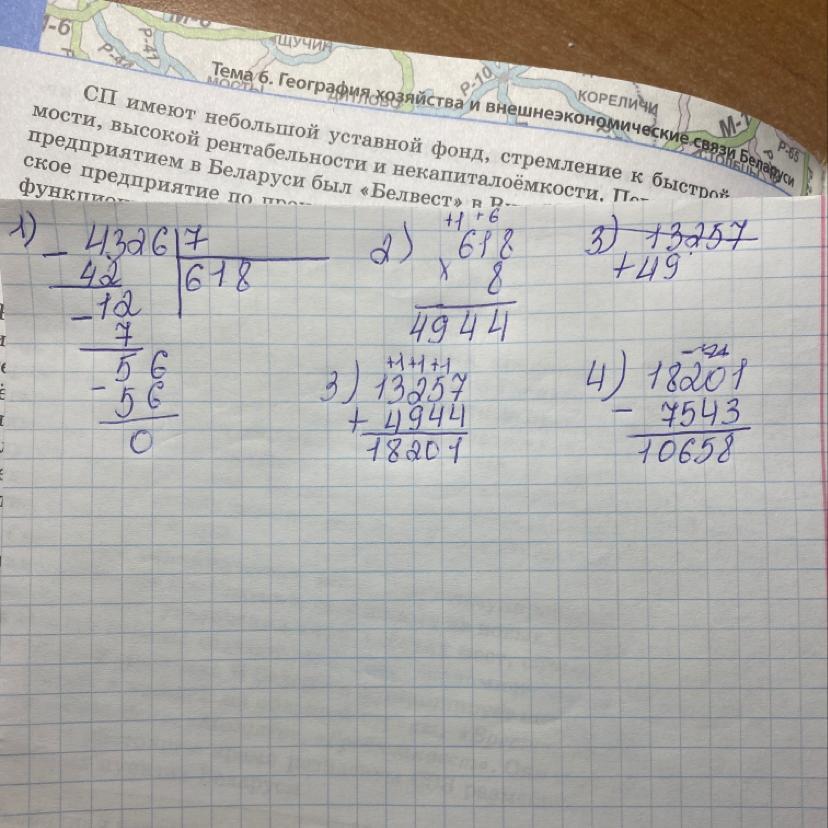 М-6
Р-41
Р-44
ЩУЧИН
МОСТЫ
Р-10
КОРЕЛИЧИ
М-1
Р-65
Тема 6. География хозяйства и внешнеэкономические связи Беларуси
СП имеют небольшой уставной фонд, стремление к быстрой
мости, высокой рентабельности и некапиталоёмкости. 
предприятием в Беларуси был «Белвест» в
ское предприятие по
1)
4326 | 7
- 42 | 618
- 12
7
56
- 56
0
2) +1 +6
618
× 8
4944
3) 13257
+49
3) +1+1+1
13257
+ 4944
18201
4)
18201
- 7543
10658